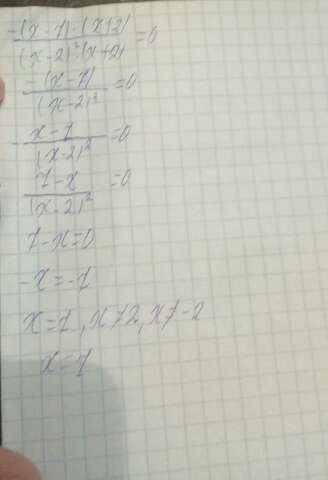 -(x-1)·(x+2)/(x-2)²·(x+2) =0
-(x-1)/(x-2)² =0
- x-1/(x-2)² =0
1-x/(x-2)² =0
1-x=0
-x=-1
x=1, x≠2, x≠-2
x=1